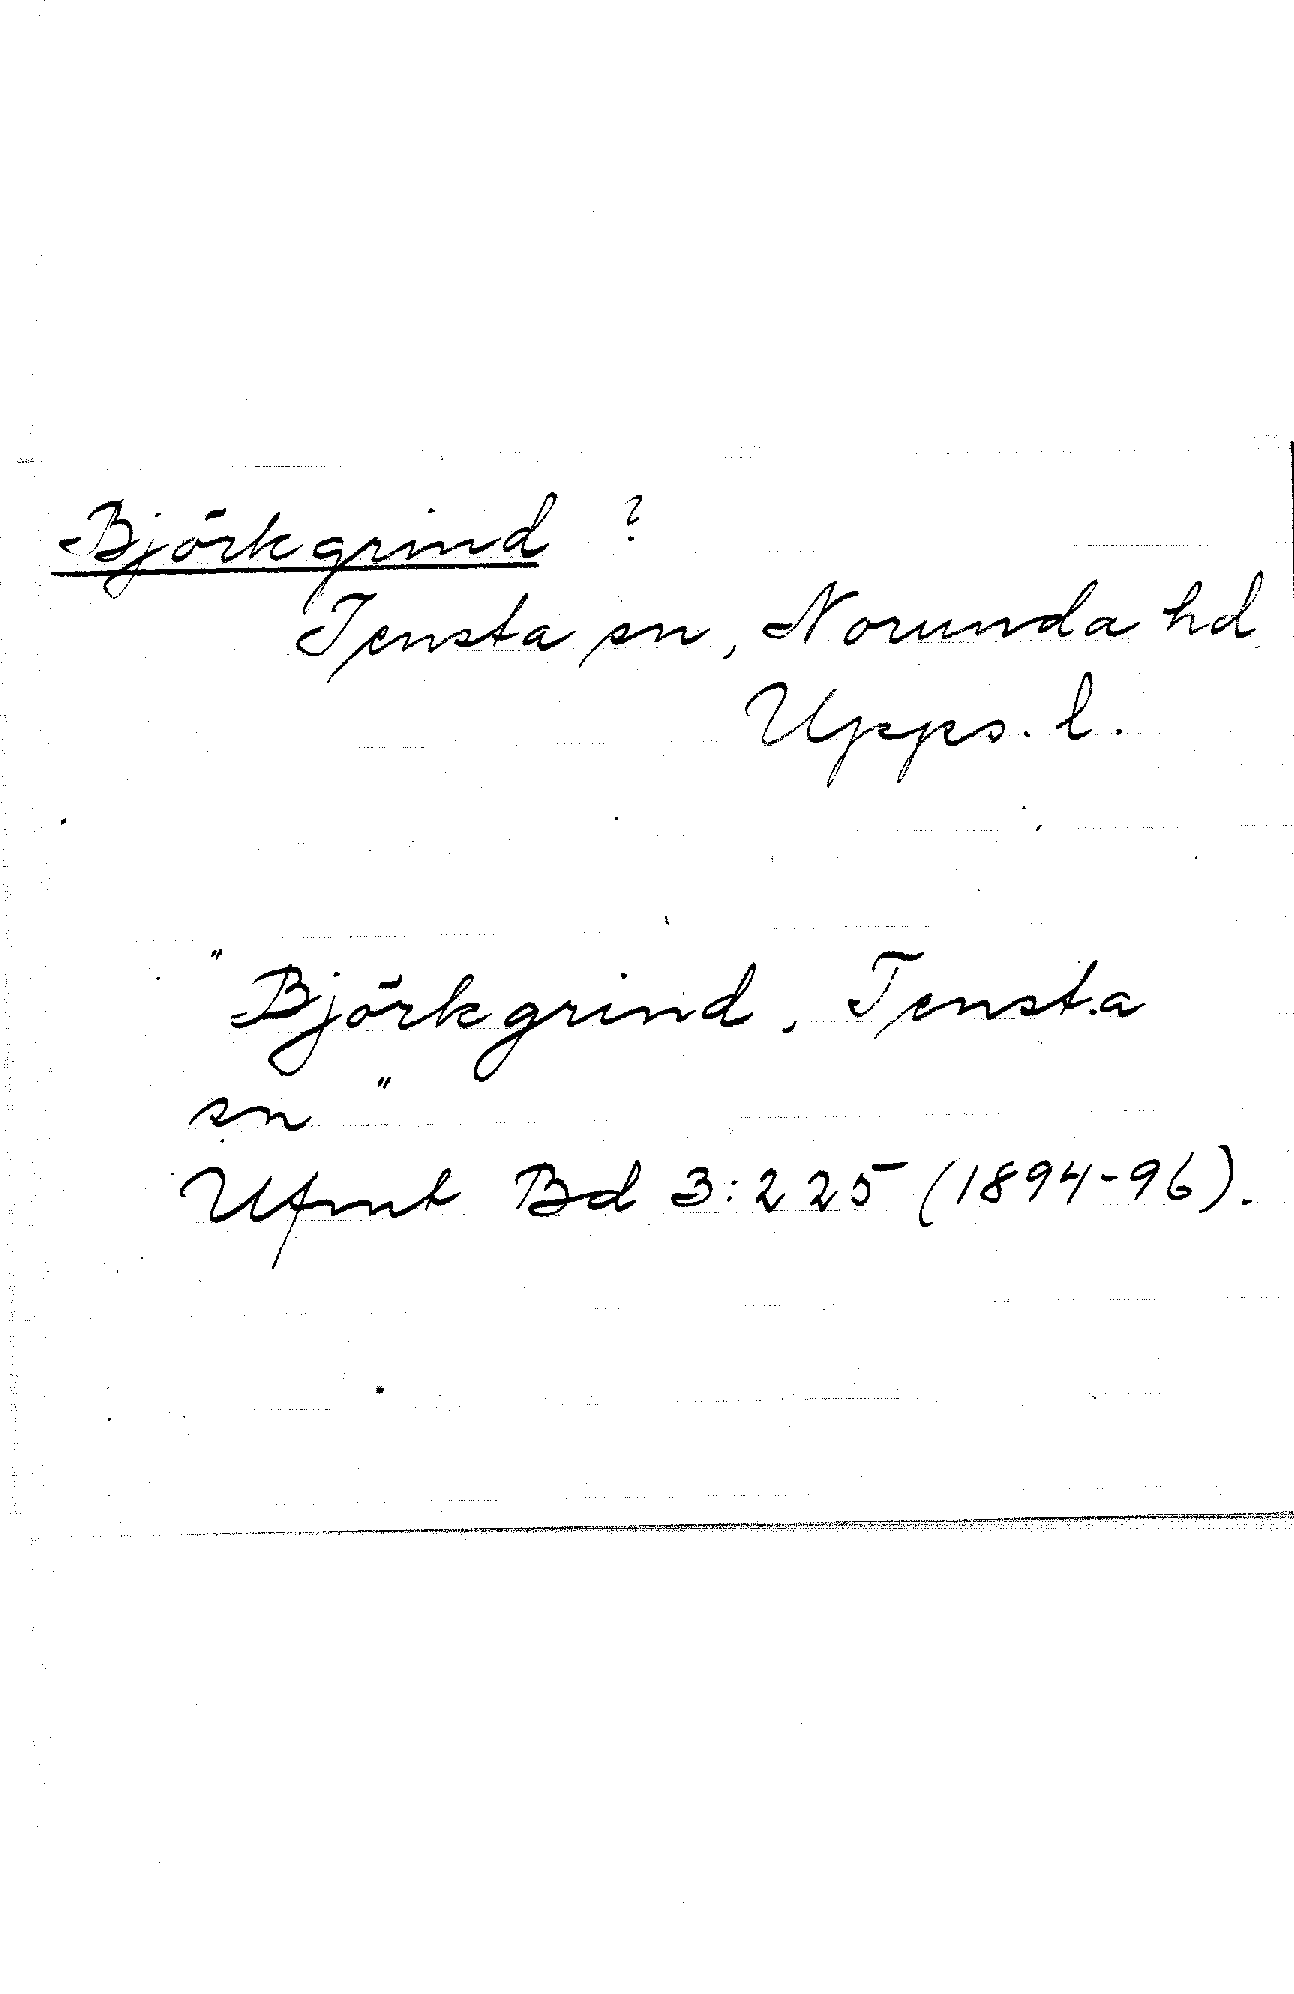 Björkgrind ?
Tensta sn, Norunda hd
Upps. l.
"Björkgrind, Tensta
sn"
Ufmt Bd 3:225 (1894-96).